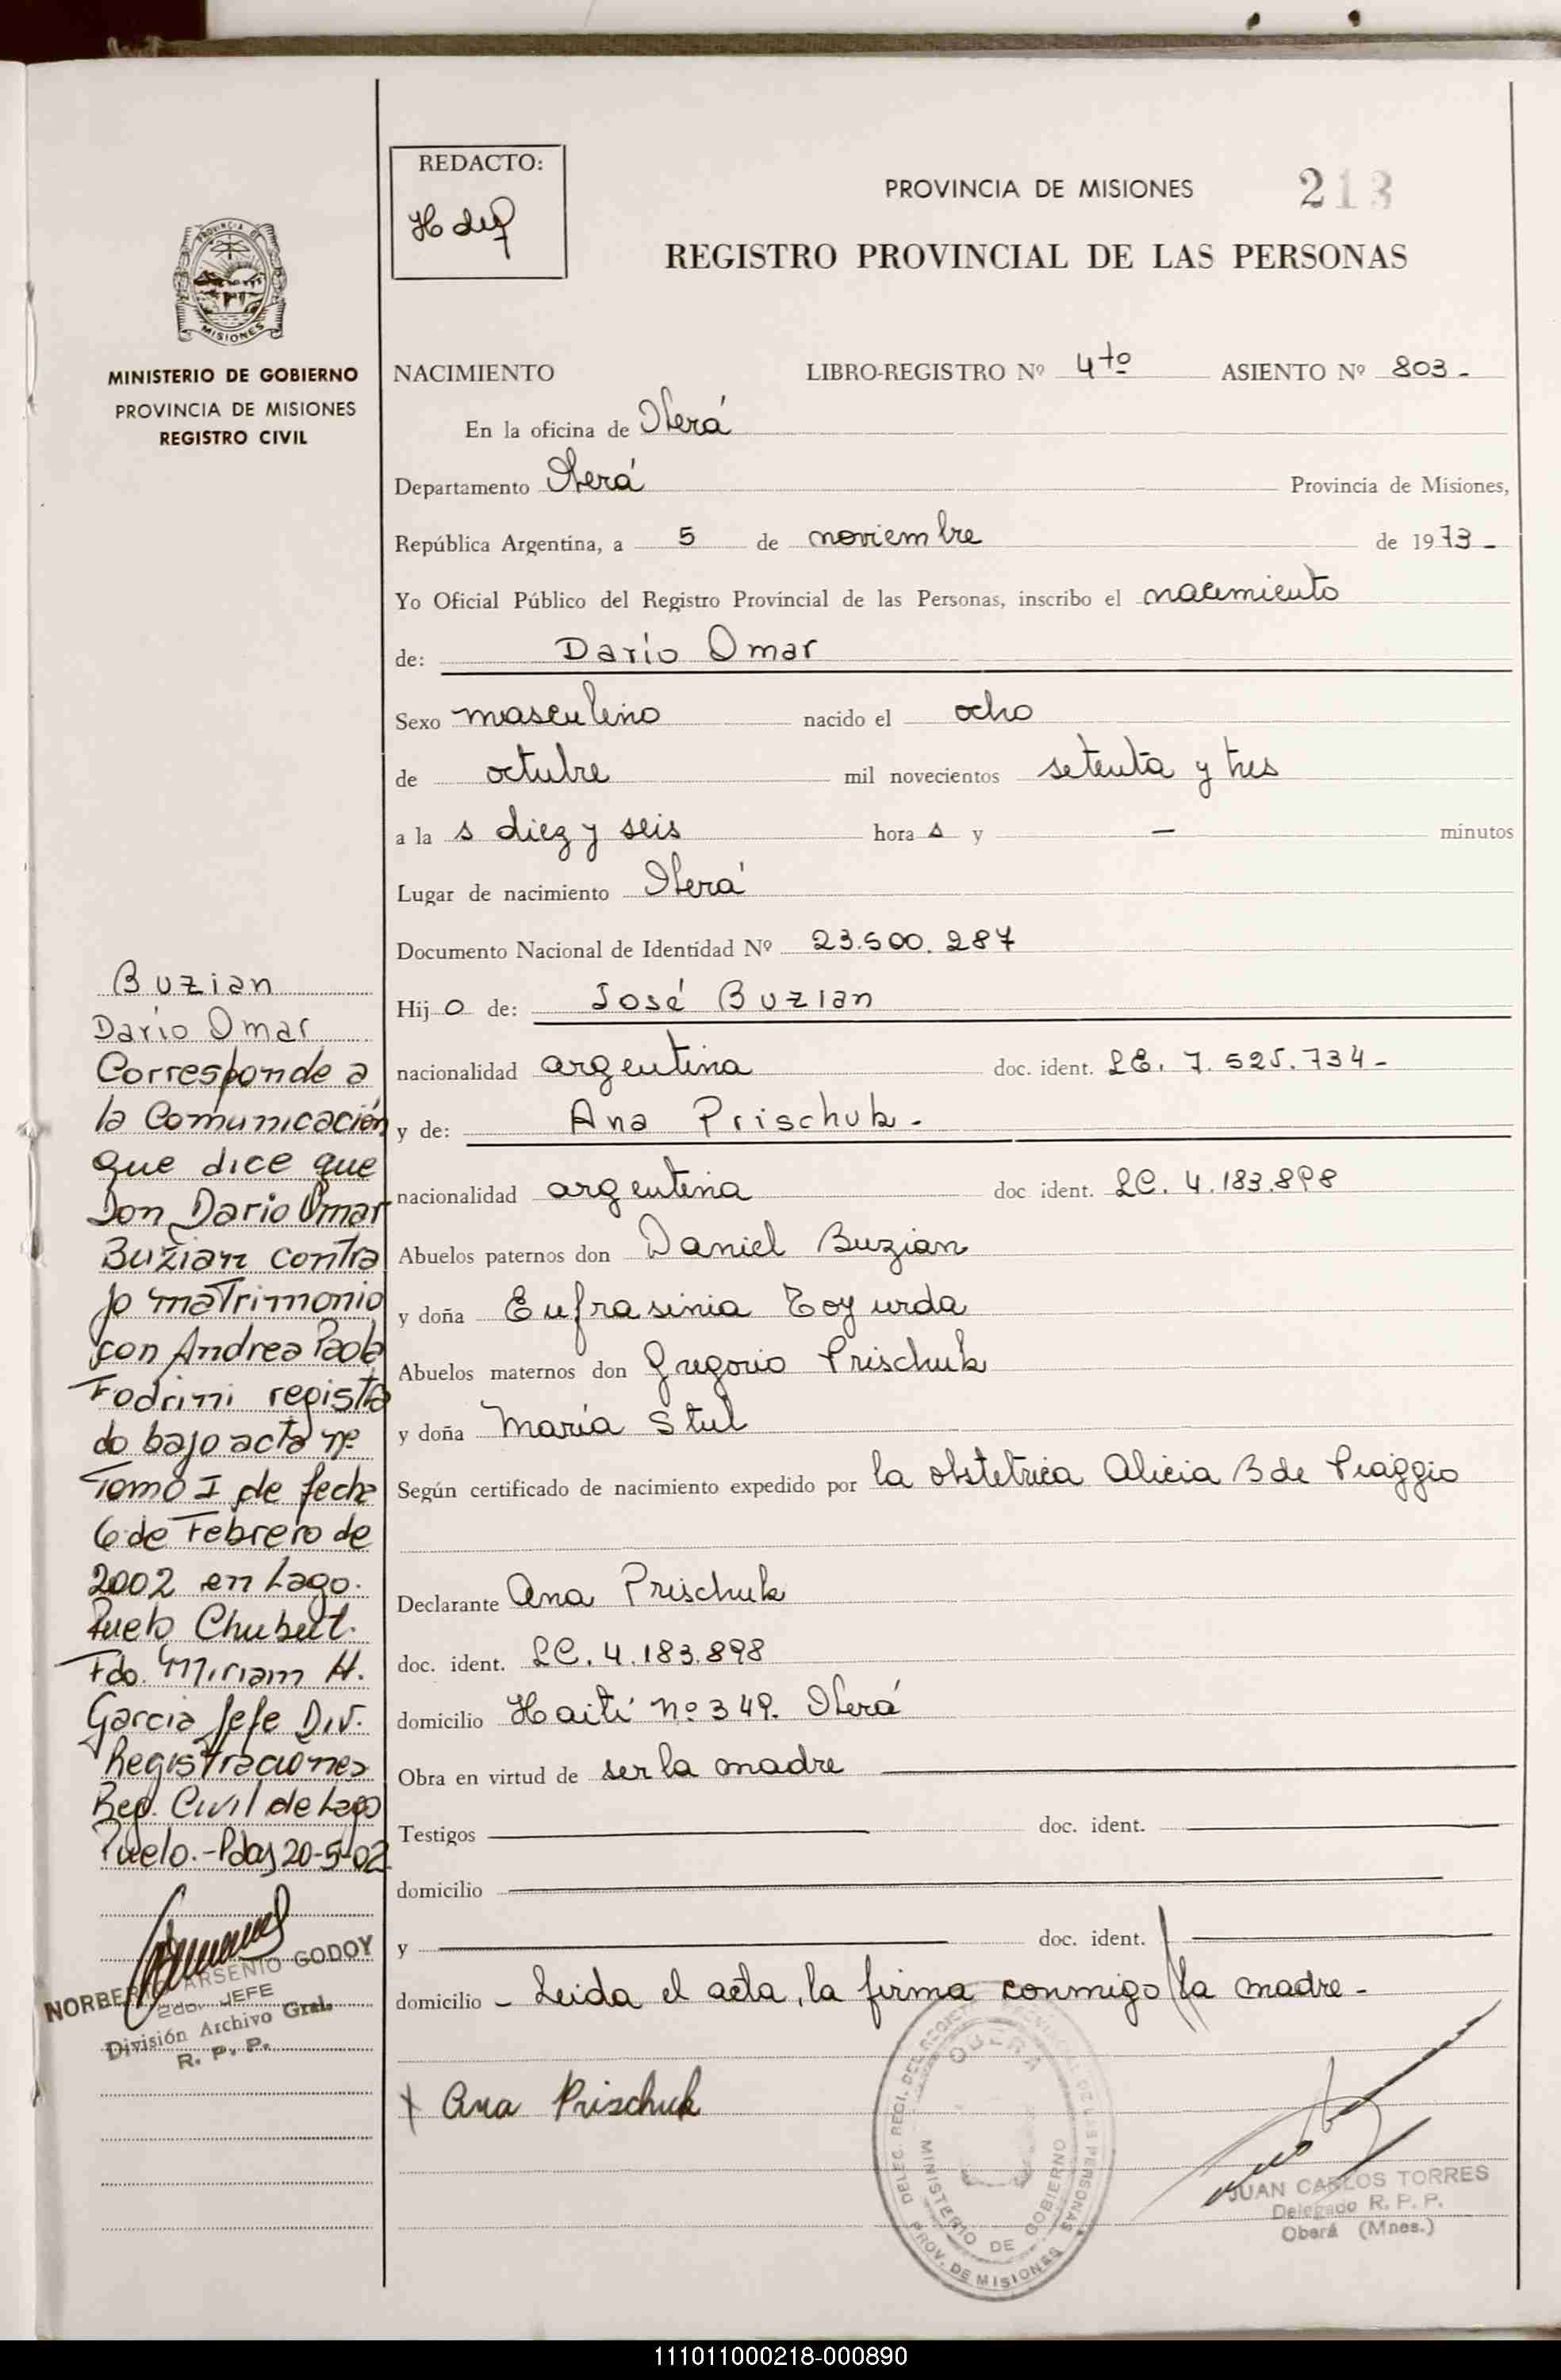 REDACTO:
PROVINCIA DE MISIONES 213
REGISTRO PROVINCIAL DE LAS PERSONAS
PROVINCIA DE
MISIONES
MINISTERIO DE GOBIERNO
PROVINCIA DE MISIONES
REGISTRO CIVIL
NACIMIENTO LIBRO-REGISTRO Nº 4to ASIENTO Nº 803-
En la oficina de Oberá
Departamento Oberá Provincia de Misiones,
República Argentina, a 5 de noviembre de 1973-
Yo Oficial Público del Registro Provincial de las Personas, inscribo el nacimiento
de: Darío Omar
Sexo masculino nacido el ocho
de octubre mil novecientos setenta y tres
a la s diez y seis hora s y - minutos
Lugar de nacimiento Oberá
Documento Nacional de Identidad Nº 23.500.287
Hij o de: José Buzian
nacionalidad argentina doc. ident. LE. 7.525.734-
y de: Ana Prischuk.
nacionalidad argentina doc ident. LC. 4.183.898
Abuelos paternos don Daniel Buzian
y doña Eufrasinia
Abuelos maternos don Gregorio Prischuk
y doña María Stul
Según certificado de nacimiento expedido por la obstetrica Alicia B de Piaggio
Declarante Ana Prischuk
doc. ident. LC. 4.183.898
domicilio Haití nº 349. Oberá
Obra en virtud de ser la madre
Testigos doc. ident.
domicilio
y doc. ident.
domicilio - Leida el acta, la firma conmigo la madre-
Ana Prischuk
OBERA
MINISTERIO DE GOBIERNO
PROV. DE MISIONES
JUAN CARLOS TORRES
Delegado R. P. P.
Oberá (Mnes.)
Buzian
Darío Omar
Corresponde a
la Comunicación
que dice que
Don Dario Omar
Buzian contra
jo matrimonio
con Andrea Paola
Fodrini registra
do bajo acta nº
Tomo I de fecha
6 de Febrero de
2002 en Lago.
Puelo Chubut.
Fdo. Miriam H.
Garcia Jefe Div.
Registraciones
Reg. Civil de Lago
Puelo.-Pdas 20-5-02
NORBERTO ARSENIO GODOY
2do. JEFE
División Archivo Gral.
R. P. P.
111011000218-000890